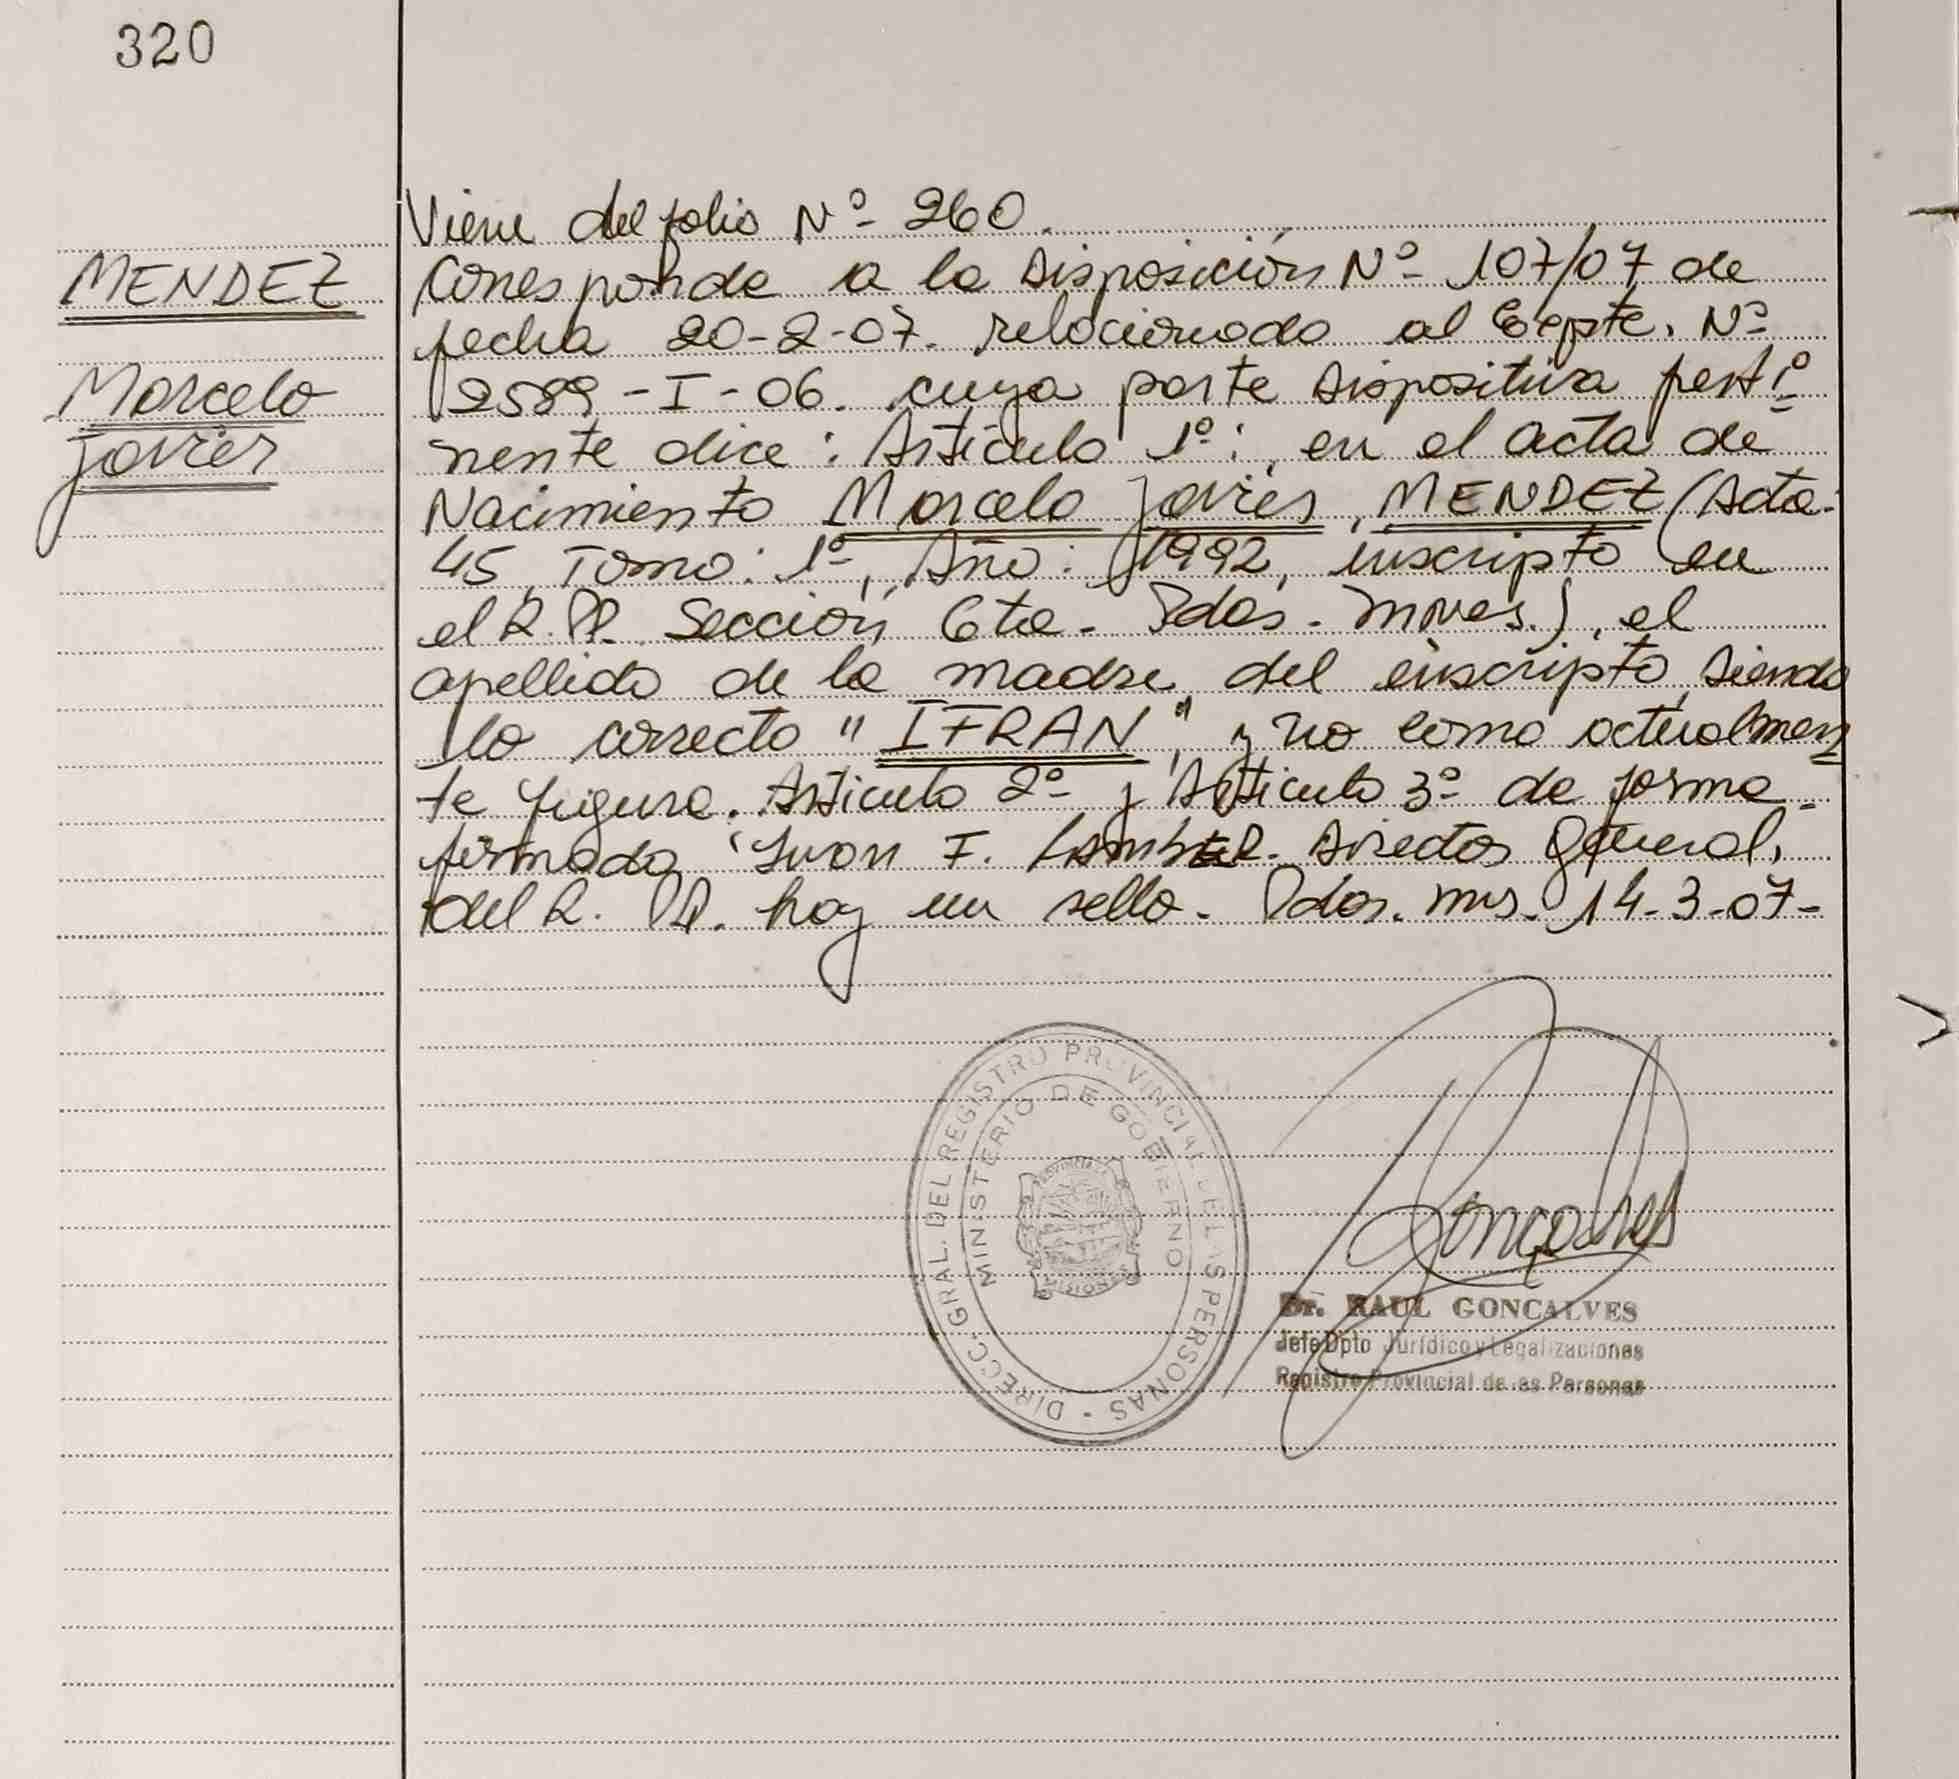 320
MENDEZ
Marcelo
Javier
Viene del folio Nº 260.
Corresponde a la Disposición Nº 107/07 de
fecha 20-2-07. relacionado al Expte. Nº
2589-I-06. cuya parte dispositiva perti
nente dice: Artículo 1º:, en el acta de
Nacimiento Marcelo Javier, MENDEZ (Acta:
45, Tomo: 1º, Año: 1992, inscripto en
el R.P.P. Sección 6ta. Pdas. Mnes.), el
apellido de la madre del inscripto, siendo
lo correcto "IFRAN", y no como actualmen
te figura. Artículo 2º y Artículo 3º de forma.
firmado Juan F. Director General,
del R.P.P. hay un sello. Pdas. Mns. 14-3-07-
DIRECC. GRAL. DEL REGISTRO PROVINCIAL DE LAS PERSONAS -
MINISTERIO DE GOBIERNO
PROVINCIA
MISIONES
Goncalves
Dr. RAUL GONCALVES
Jefe Dpto Jurídico y Legalizaciones
Registro Provincial de as Personas